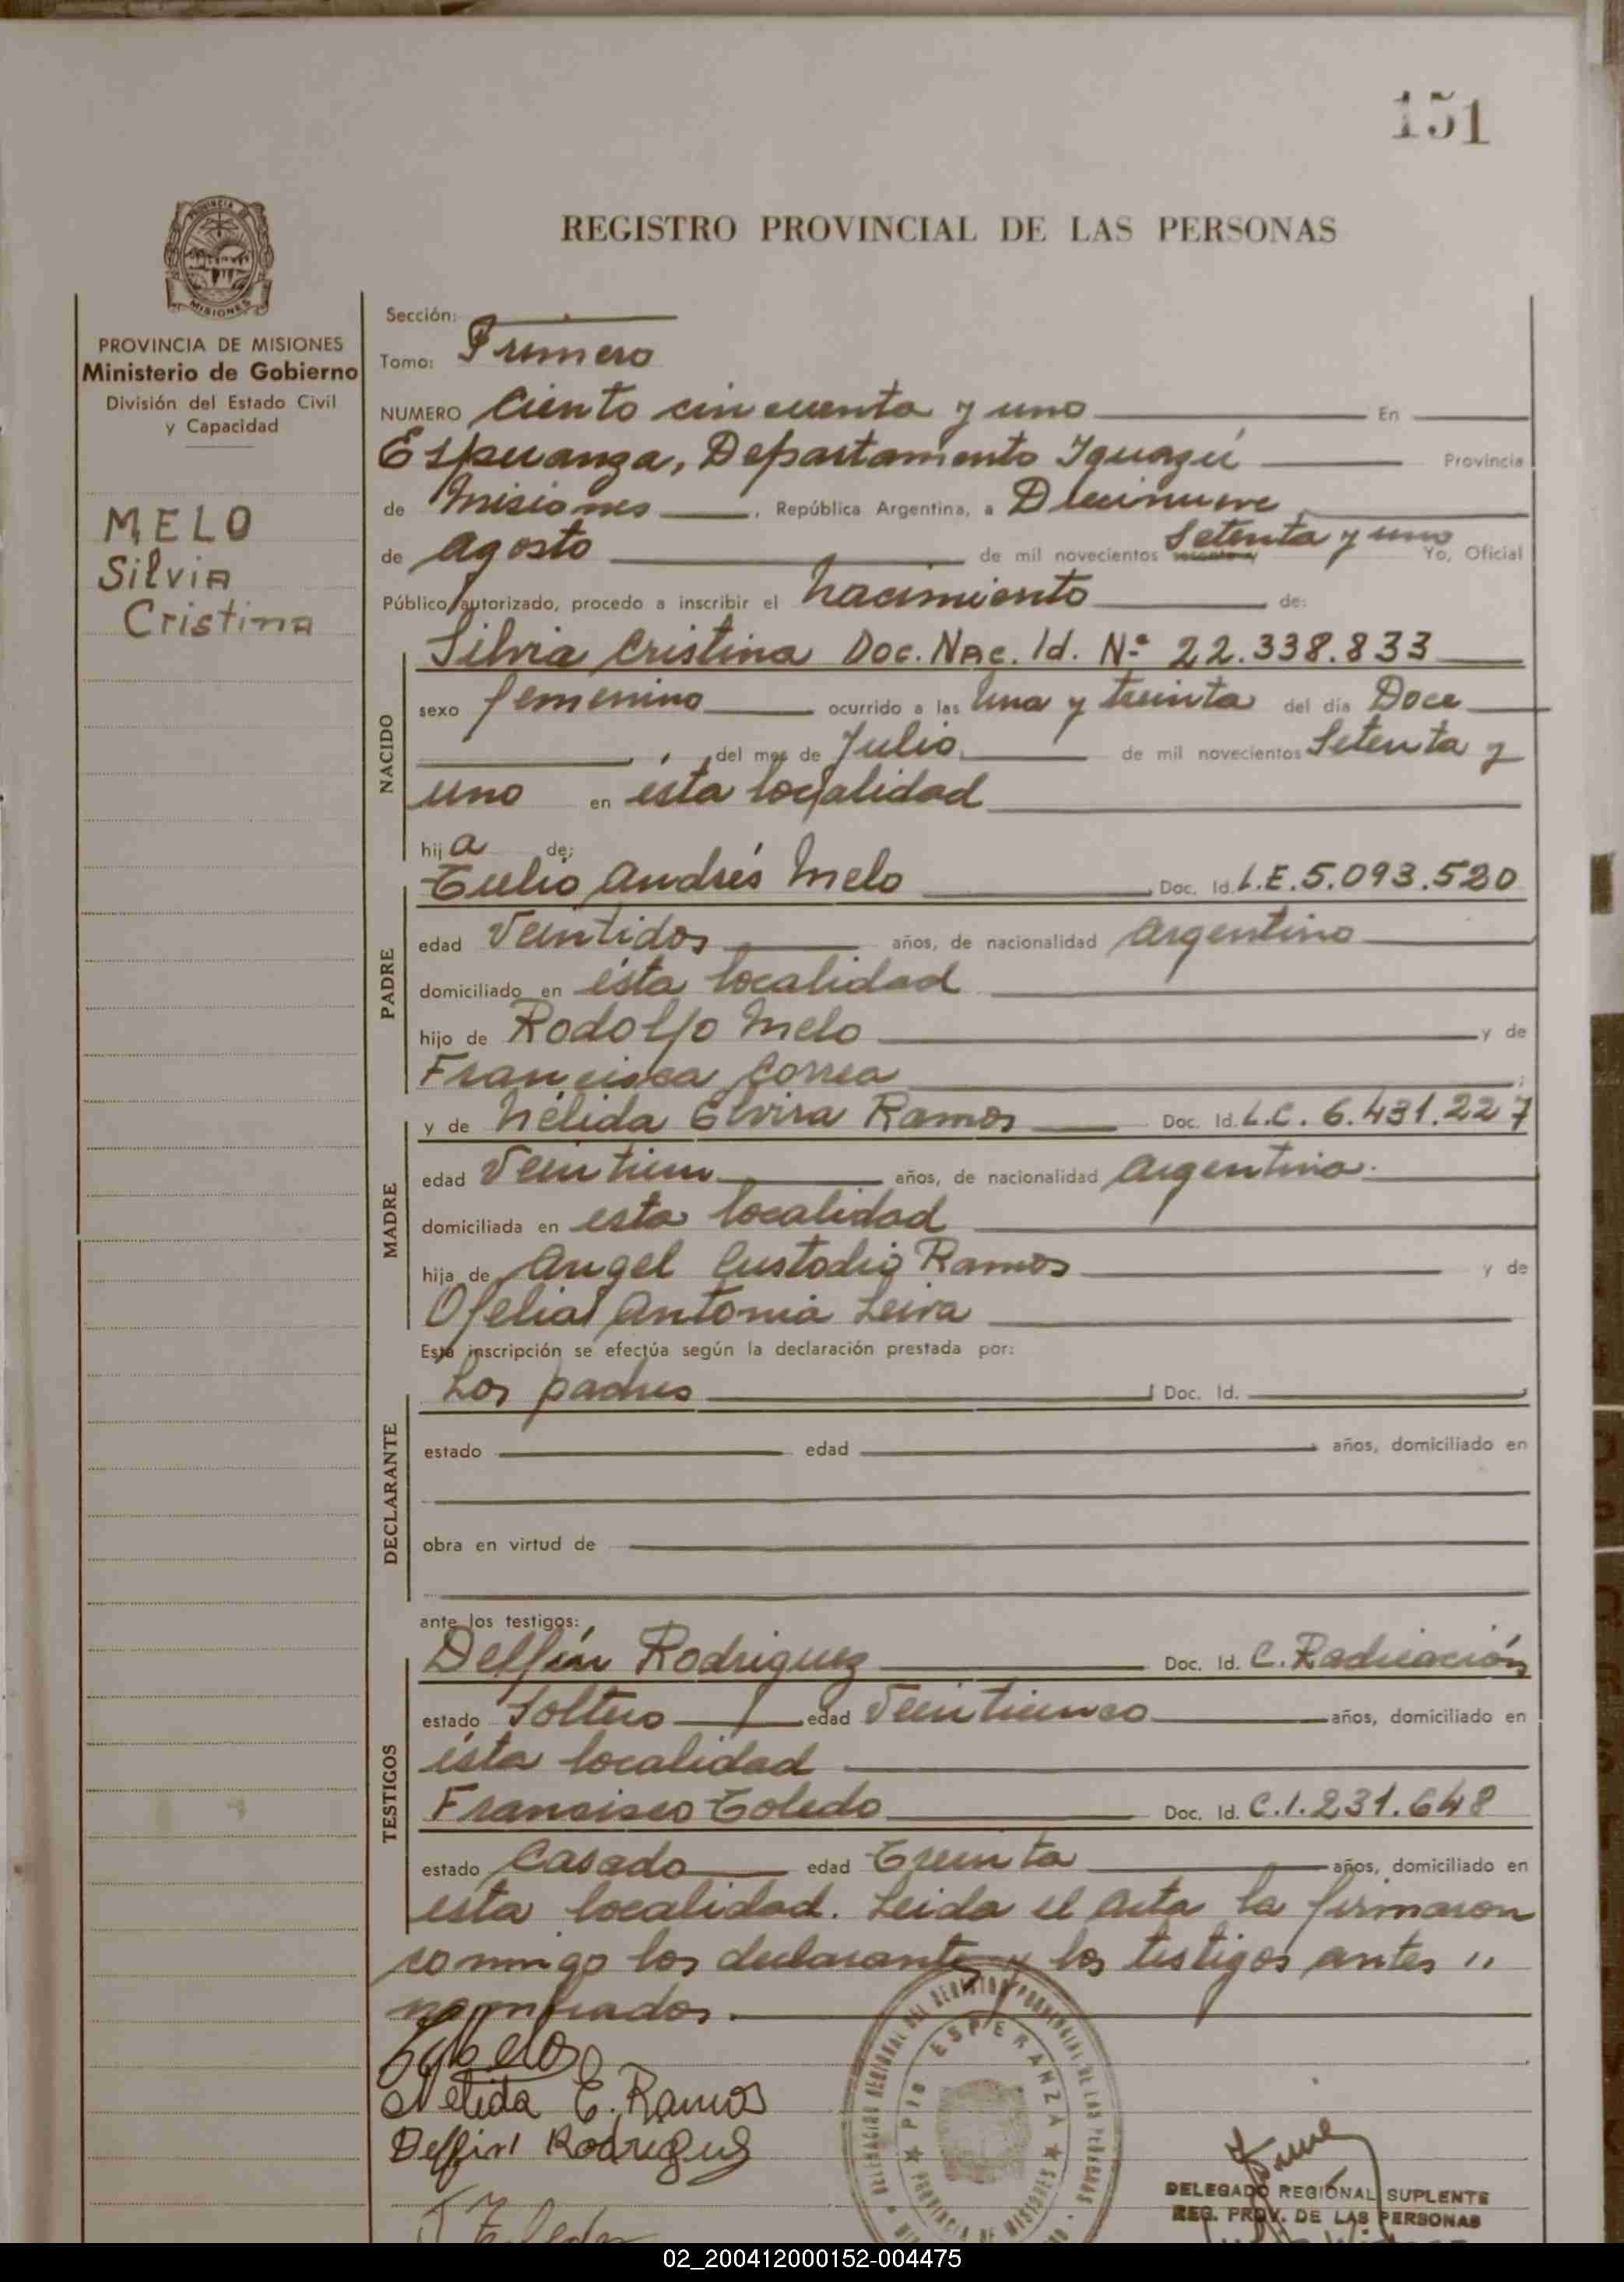 151
REGISTRO PROVINCIAL DE LAS PERSONAS
PROVINCIA DE
MISIONES
PROVINCIA DE MISIONES
Ministerio de Gobierno
División del Estado Civil
y Capacidad
MELO
Silvia
Cristina
Sección:
Tomo: Primero
NUMERO Ciento cincuenta y uno En
Esperanza, Departamento Iguazú Provincia
de Misiones, República Argentina, a Diecinueve
de Agosto de mil novecientos Setenta y uno Yo, Oficial
Público autorizado, procedo a inscribir el Nacimiento de:
NACIDO
Silvia Cristina Doc. Nac. Id. Nº 22.338.833
sexo femenino ocurrido a las Una y treinta del día Doce
del mes de Julio de mil novecientos Setenta y
uno en ésta localidad
hija de:
PADRE
Tulio Andrés Melo Doc. Id. L.E. 5.093.520
edad Veintidos años, de nacionalidad Argentino
domiciliado en ésta localidad
hijo de Rodolfo Melo y de
Francisca Correa
MADRE
y de Nélida Elvira Ramos Doc. Id. L.C. 6.431.227
edad Veintiun años, de nacionalidad Argentina.
domiciliada en esta localidad
hija de Angel Custodio Ramos y de
Ofelia Antonia Leiva
Esta inscripción se efectúa según la declaración prestada por:
DECLARANTE
Los padres Doc. Id.
estado edad años, domiciliado en
obra en virtud de
ante los testigos:
TESTIGOS
Delfín Rodriguez Doc. Id. C. Radicación
estado Soltero edad Veinticinco años, domiciliado en
ésta localidad
Francisco Toledo Doc. Id. C.I. 231.648
estado Casado edad Treinta años, domiciliado en
esta localidad. Leida el Acta la firmaron
conmigo los declarantes y los testigos antes "
nombrados.
Nelida E. Ramos
Delfin Rodriguez
DELEGACION REGIONAL DEL REGISTRO PROVINCIAL DE LAS PERSONAS
ESPERANZA
PROVINCIA DE MISIONES
DELEGADO REGIONAL SUPLENTE
REG. PROV. DE LAS PERSONAS
02_200412000152-004475